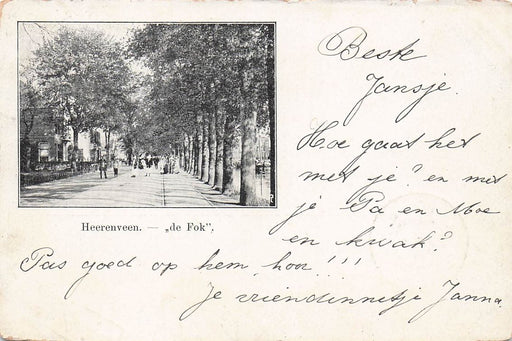 Beste
Jansje.
Hoe gaat het
met je? en met
je Pa en Moe
en kwak?
Heerenveen. — „de Fok".
Pas goed op hem, hoor!!!
Je vriendinnetje Janna.